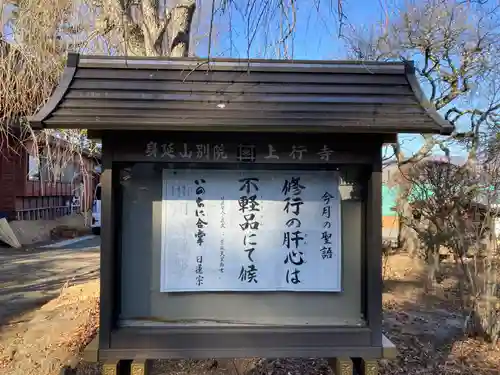 身延山別院 上行寺
今月の聖語
修行の肝心は
不軽品にて候
いのちに合掌 日蓮宗